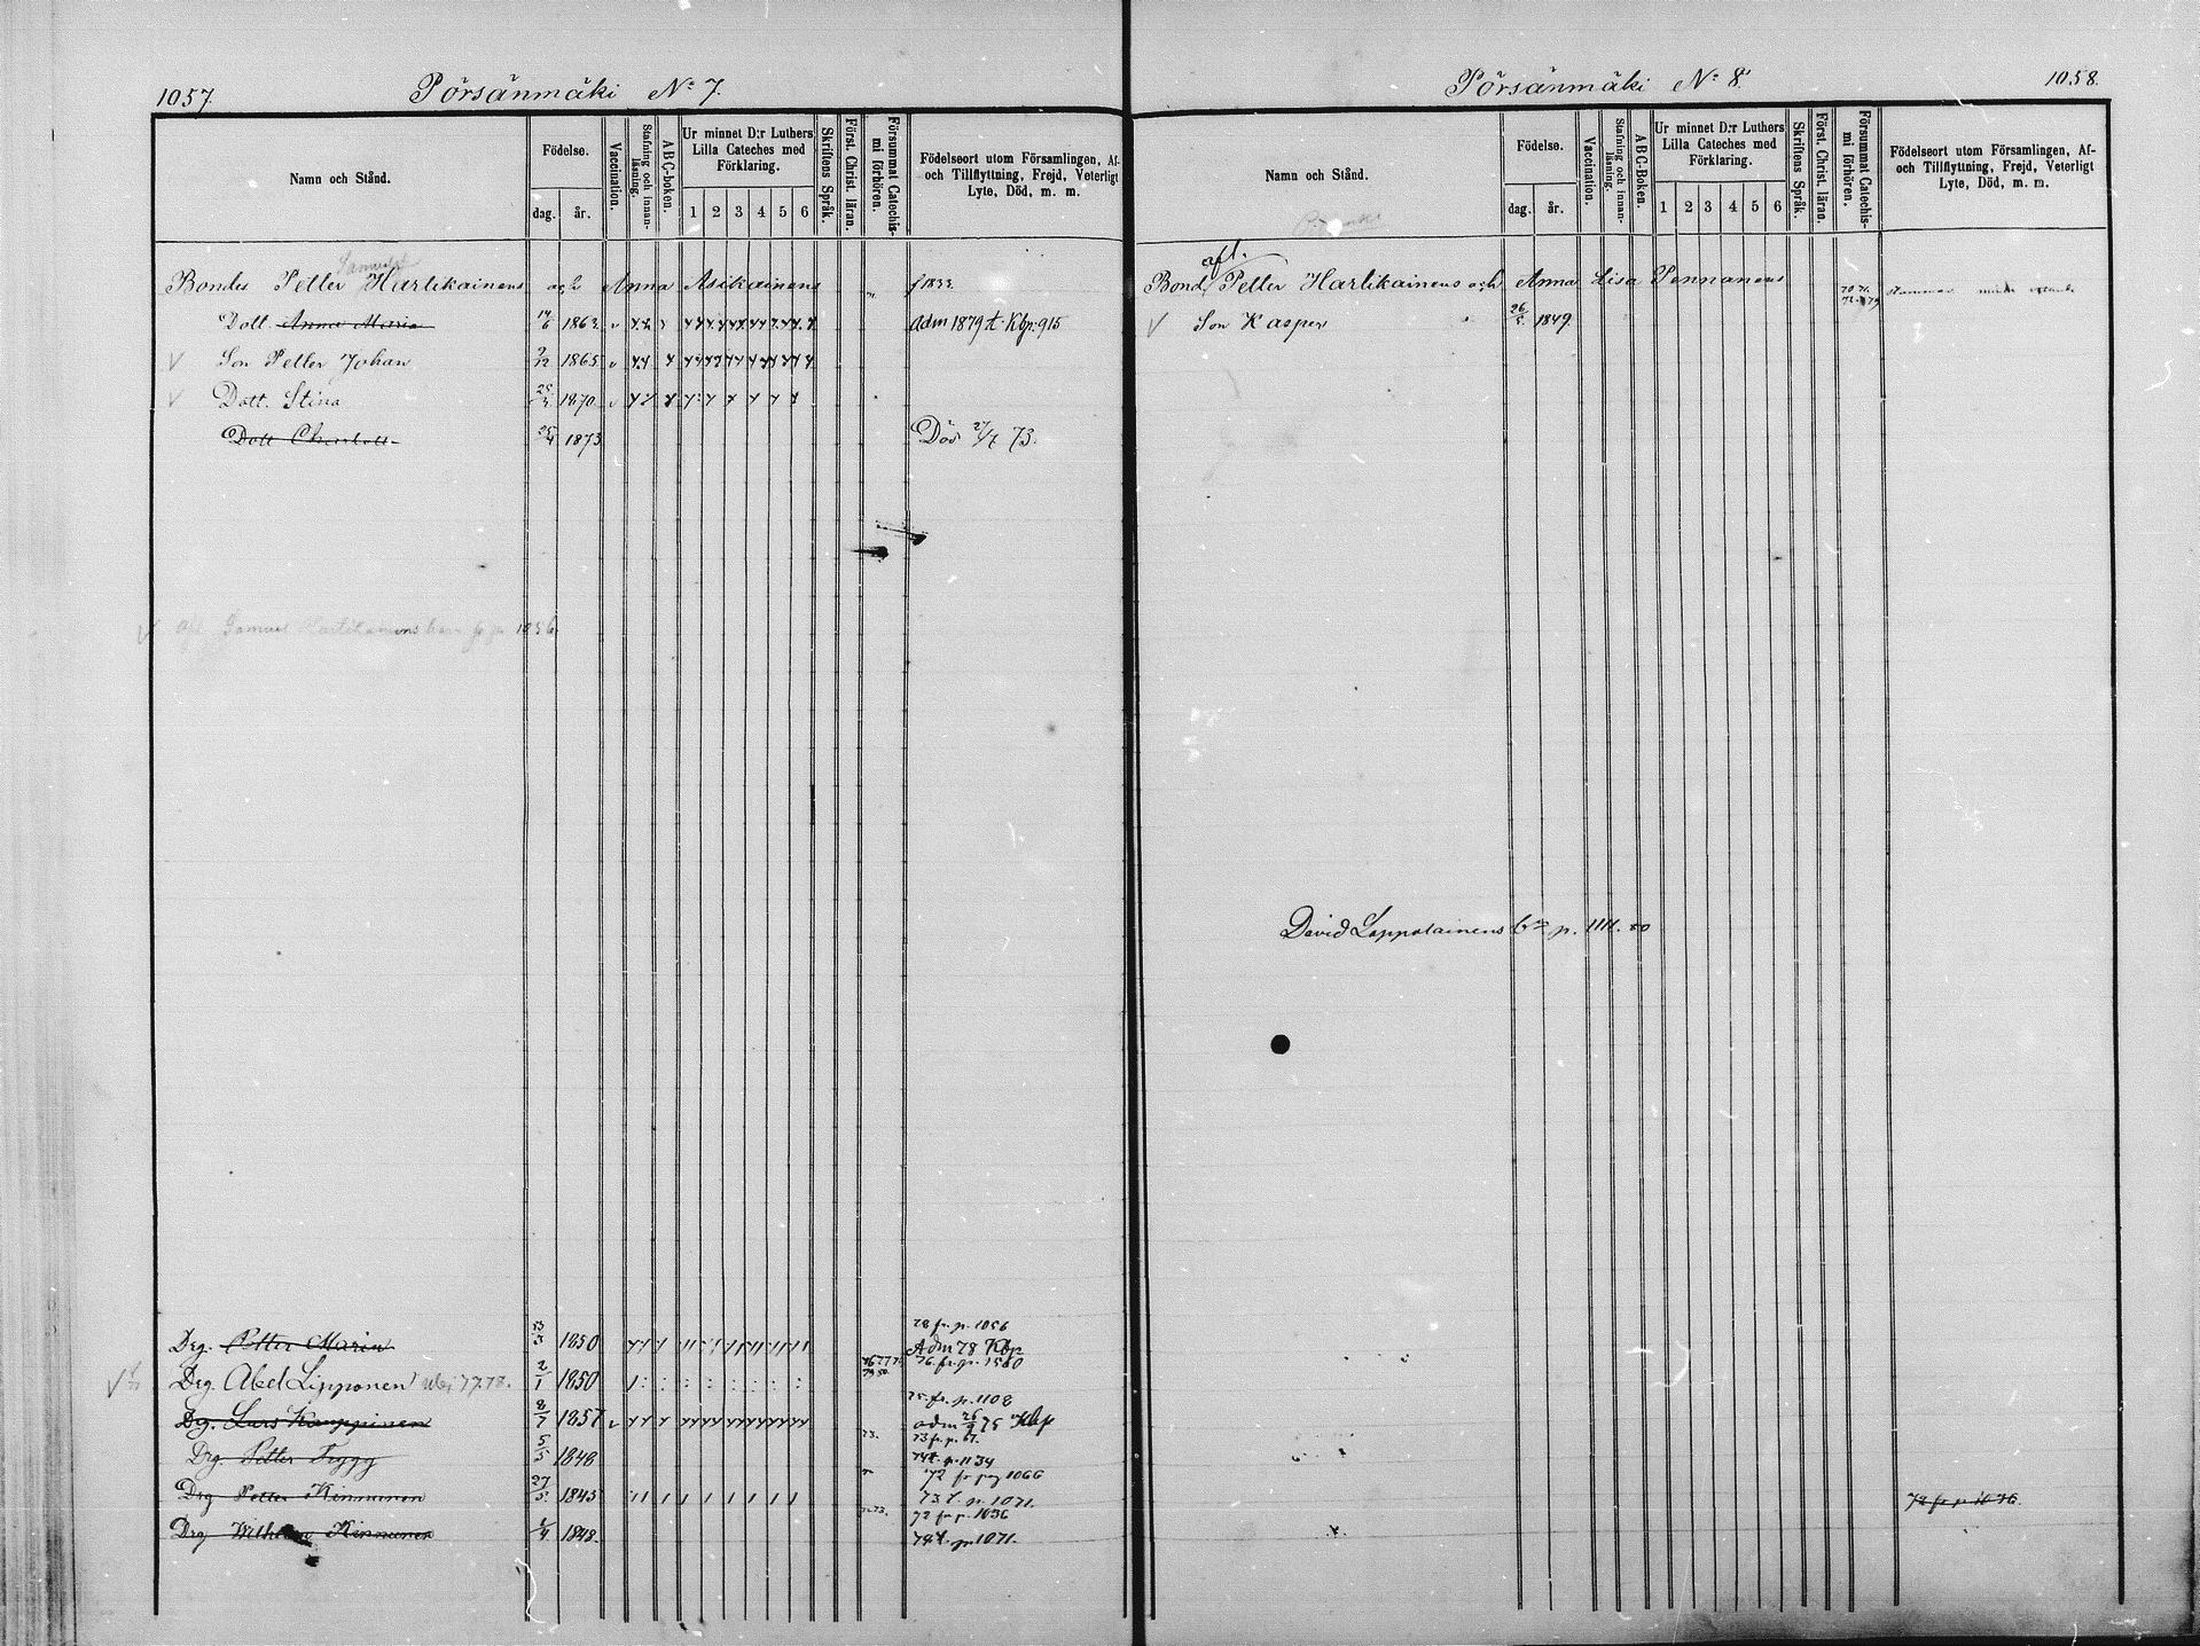 1057.
Pörsänmäki No 7.
Namn och Stånd.
Födelse.
dag.
år.
Vaccination.
Stafning och innan-
läsning.
ABC-boken.
Ur minnet D:r Luthers
Lilla Cateches med
Förklaring.
1 2 3 4 5 6
Skriftens Språk.
Först. Christ. läran.
Försummat Catechis-
mi förhören.
Födelseort utom Församlingen, Af-
och Tillflyttning, Frejd, Veterligt
Lyte, Död, m. m.
Samuel
Bondes Petter Hartikainens och Anna Asikainens f 1833.
Dott. Anna Maria 14/6 1862. adm 1879 t. Kbp. 915
Son Petter Johan 9/12 1865
Dott. Stina 25/3 1870
Dott 25/4 1873 Död 27/7 73.
Samuel Hartikainens barn fr p. 1056
28 fr. p. 1056
Drg. Petter Marin 23/3 1850 Adm 78 Kbp
76. fr. p. 1560
Drg. Abel Lipponen 77.78. 2/1 1850
75. fr. p. 1108
Drg. Lars Kauppinen 8/7 1857 adm 26/9 75 Kbp
73. 73 fr. p. 67.
Drg. Petter Tryyg 5/5 1848 74 t. p. 1134
72 fr pag 1066
Drg Petter Kinnunen 27/5 1845 73 t. p. 1071.
72 fr p. 1036
Drg Wilhelm Kinnunen 1/4 1848. 74 t. p. 1071.
Pörsänmäki No 8.
1058.
Namn och Stånd.
Födelse.
dag.
år.
Vaccination.
Stafning och innan-
läsning.
ABC-Boken.
Ur minnet D:r Luthers
Lilla Cateches med
Förklaring.
1 2 3 4 5 6
Skriftens Språk.
Först. Christ. läran.
Försummat Catechis-
mi förhören.
Födelseort utom Församlingen, Af-
och Tillflyttning, Frejd, Veterligt
Lyte, Död, m. m.
afl.
Bond. Petter Hartikainens och Anna Lisa Pennanens
Son Kasper 26/5 1849.
David Lappalainens p. 1111. 80
72 fr p 1036.